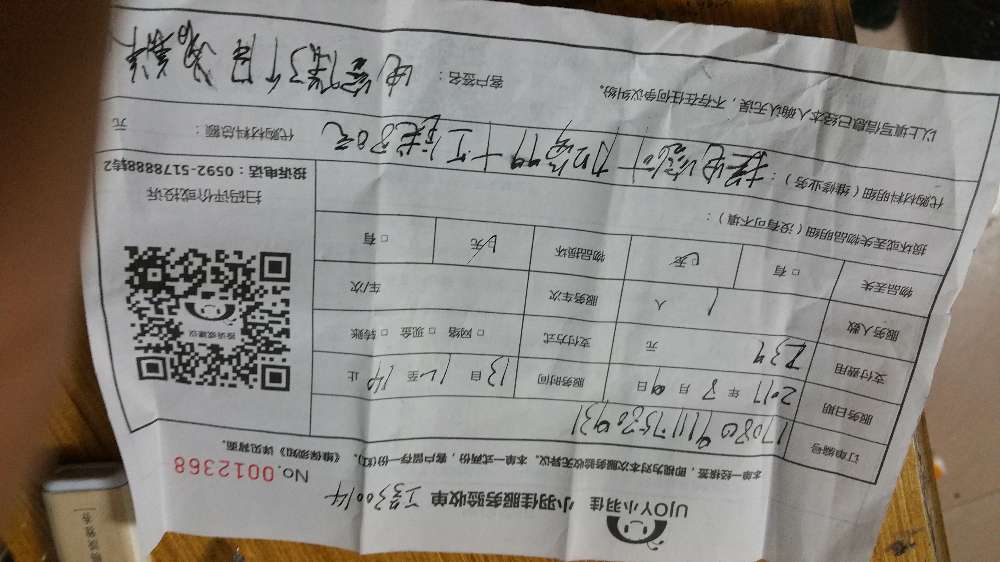 UJOY小羽佳 小羽佳服务验收单 工号30014
本单一经接签,即视为对本次服务验收无异议。本单一式两份,客户留存一份(红),《维保须知》详见背面。
No.0012368
订单编号
服务日期 2017 年 8 月 9 日 服务时间 13 自 12 至 14 止
支付费用 234 元 支付方式 □网络 □现金 □转账
服务人数 1 人 服务车次 车/次
物品丢失 □有 无 物品损坏 □有 无
损坏或丢失物品明细(没有可不填):
代购材料明细(维修业务):
代购材料总额: 元
扫码评价或投诉
投诉电话:0592-5178888转2
投诉或建议
以上填写信息已经本人确认无误,不存在任何争议纠纷。
客户签名: